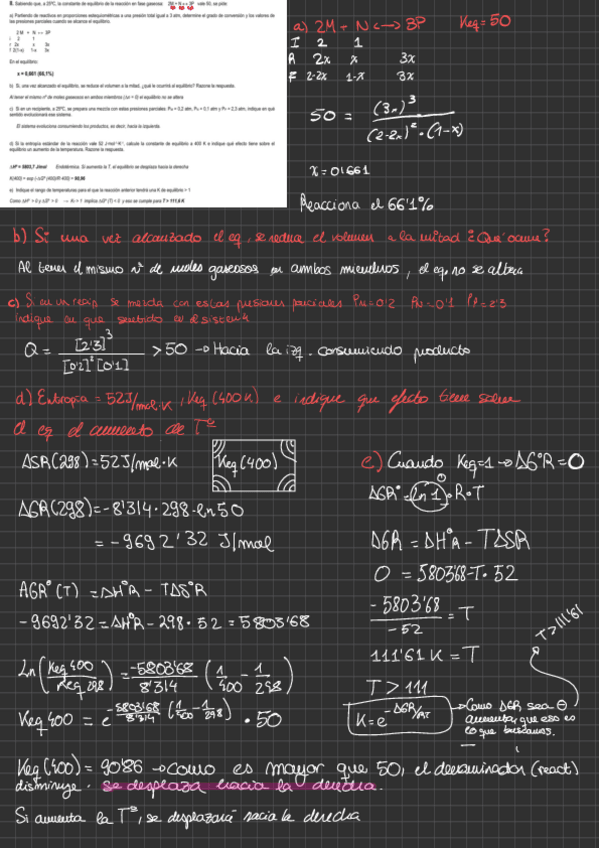 8. Sabiendo que, a 25ºC, la constante de equilibrio de la reacción en fase gaseosa 2M + N <=> 3P vale 50, se pide:
a) Partiendo de reactivos en proporciones estequiométricas a una presión total igual a 3 atm, determine el grado de conversión y los valores de las presiones parciales cuando se alcance el equilibrio.
2 M + N <=> 3P
i 2 1
r 2x x 3x
f 2(1-x) 1-x 3x
En el equilibrio:
x = 0,661 (66,1%)
b) Si, una vez alcanzado el equilibrio, se reduce el volumen a la mitad, ¿qué le ocurrirá al equilibrio? Razone la respuesta.
Al tener el mismo nº de moles gaseosos en ambos miembros (Δn = 0) el equilibrio no se altera
c) Si en un recipiente, a 25ºC, se prepara una mezcla con estas presiones parciales: PM = 0,2 atm, PN = 0,1 atm y PP = 2,3 atm, indique en qué sentido evolucionará ese sistema.
El sistema evoluciona consumiendo los productos, es decir, hacia la izquierda.
d) Si la entropía estándar de la reacción vale 52 J·mol⁻¹·K⁻¹, calcule la constante de equilibrio a 400 K e indique qué efecto tiene sobre el equilibrio un aumento de la temperatura. Razone la respuesta.
ΔHº = 5803,7 J/mol Endotérmica. Si aumenta la T, el equilibrio se desplaza hacia la derecha
K(400) = exp (-ΔGº (400)/R·400) = 90,90
e) Indique el rango de temperaturas para el que la reacción anterior tendrá una K de equilibrio > 1
Como ΔHº > 0 y ΔSº > 0 → K > 1 implica ΔGº (T) < 0 y eso se cumple para T > 111,6 K
a) 2M + N <-> 3P Keq = 50
I 2 1
R 2x x 3x
F 2-2x 1-x 3x
50 = (3x)³ / (2-2x)² · (1-x)
x = 0'661
Reacciona el 66'1%
b) Si una vez alcanzado el eq, se reduce el volumen a la mitad ¿Qué ocurre?
Al tener el mismo nº de moles gaseosos en ambos miembros, el eq no se altera
c) Si en un recip. se mezcla con estas presiones parciales PM = 0'2 PN = 0'1 PP = 2'3
indique en que sentido es el sistema
Q = [2'3]³ / [0'2]² [0'1] > 50 → Hacia la izq. consumiendo producto
d) Entropia = 52 J/mol·K, Keq (400K) e indique que efecto tiene sobre
el eq el aumento de Tª
ΔSR (298) = 52 J/mol·K
Keq (400)
ΔGR (298) = -8'314 · 298 · ln 50
= -9692'32 J/mol
ΔGRº (T) = ΔHºR - TΔSºR
-9692'32 = ΔHºR - 298 · 52 = 5803'68
Ln (Keq 400 / Keq 298) = -5803'68 / 8'314 (1/400 - 1/298)
Keq 400 = e^(-5803'68/8'314 (1/400 - 1/298)) · 50
e) Cuando Keq = 1 → ΔGºR = 0
ΔGRº = -ln 1 · R · T
0
ΔGR = ΔHºR - TΔSR
0 = 5803'68 - T · 52
-5803'68 / -52 = T
111'61 K = T
T > 111
T > 111'61
K = e^(-ΔGR/RT)
→ Como ΔGR sea ⊖
aumenta, que eso es
lo que buscamos.
Keq (400) = 90'86 → Como es mayor que 50, el denominador (react)
disminuye. se desplaza hacia la derecha.
Si aumenta la Tª, se desplazará hacia la derecha